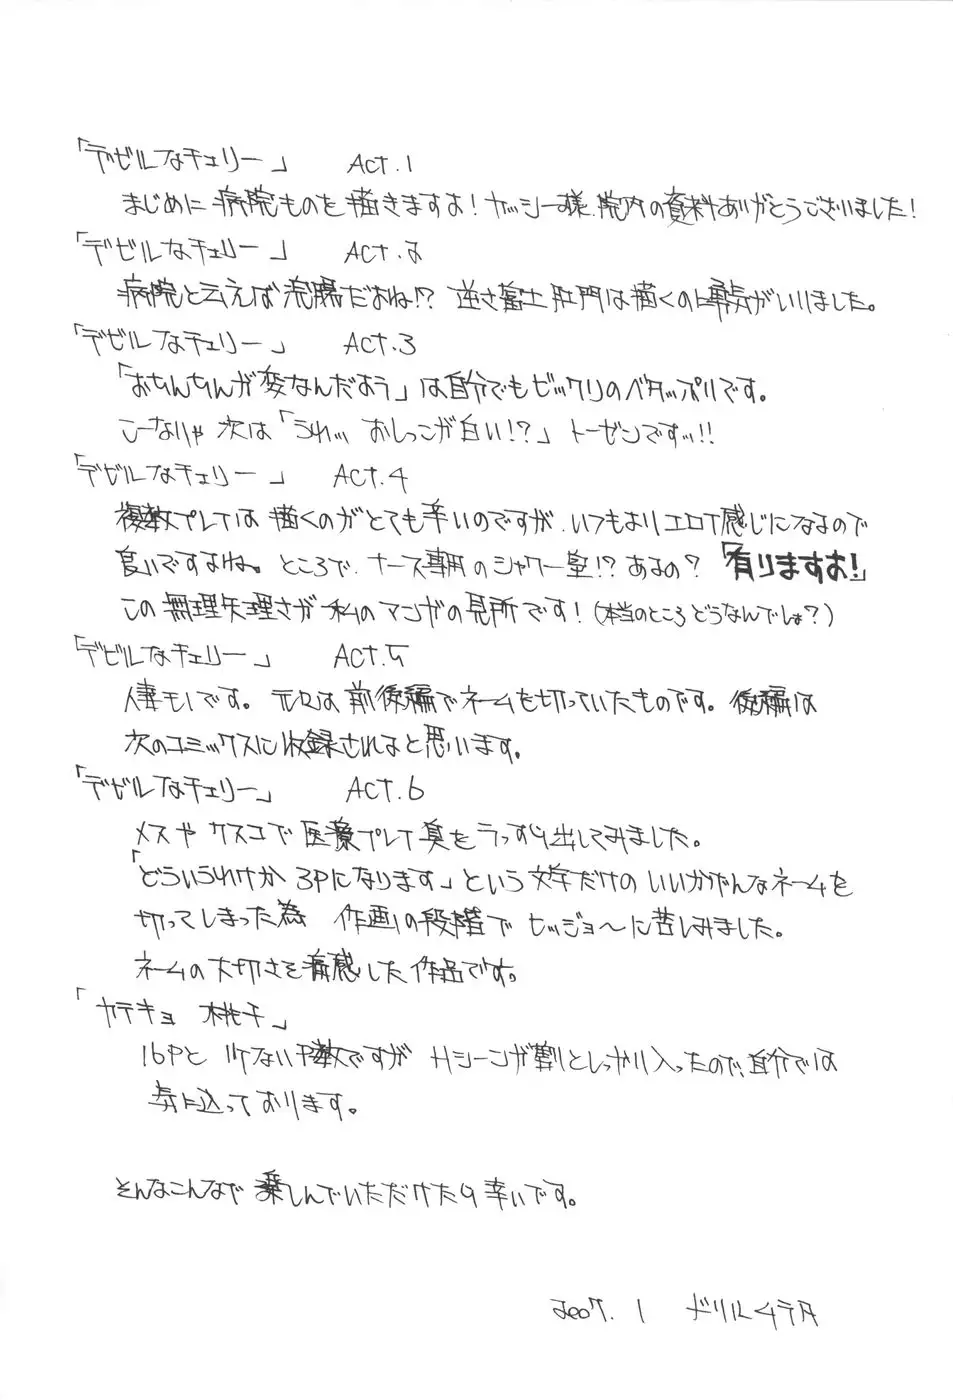 「デビルなチェリー」 Act.1
まじめに病院ものを描きますよ!ヤッシー様、院内の資料ありがとうございました!
「デビルなチェリー」 Act.2
病院と云えば浣腸だよね!? 逆さ富士肛門は描くのに勇気がいりました。
「デビルなチェリー」 Act.3
「おちんちんが変なんだよう」は自分でもビックリのベタップリです。
こーなりゃ次は「うわっ おしっこが白い!?」トーゼンですッ!!
「デビルなチェリー」 Act.4
複数プレイは描くのがとても辛いのですが、いつもよりエロイ感じになるので
良いですよね。ところで、ナース専用のシャワー室!?あるの?「有りますよ!」
この無理矢理さが私のマンガの見所です!(本当のところどうなんでしょ?)
「デビルなチェリー」 Act.5
人妻モノです。元々は前後編でネームを切っていたものです。後編は
次のコミックスに収録されると思います。
「デビルなチェリー」 Act.6
メスやクスコで医療プレイ臭をうっすら出してみました。
「どういうわけか3Pになります」という文字だけのいいかげんなネームを
切ってしまった為 作画の段階でヒッジョ〜に苦しみました。
ネームの大切さを痛感した作品です。
「カテキョ 桃子」
16Pと少ない P数ですがHシーンが割としっかり入ったので、自分では
気に込っております。
そんなこんなで楽しんでいただけたら幸いです。
2007.1 ドリルムラタ